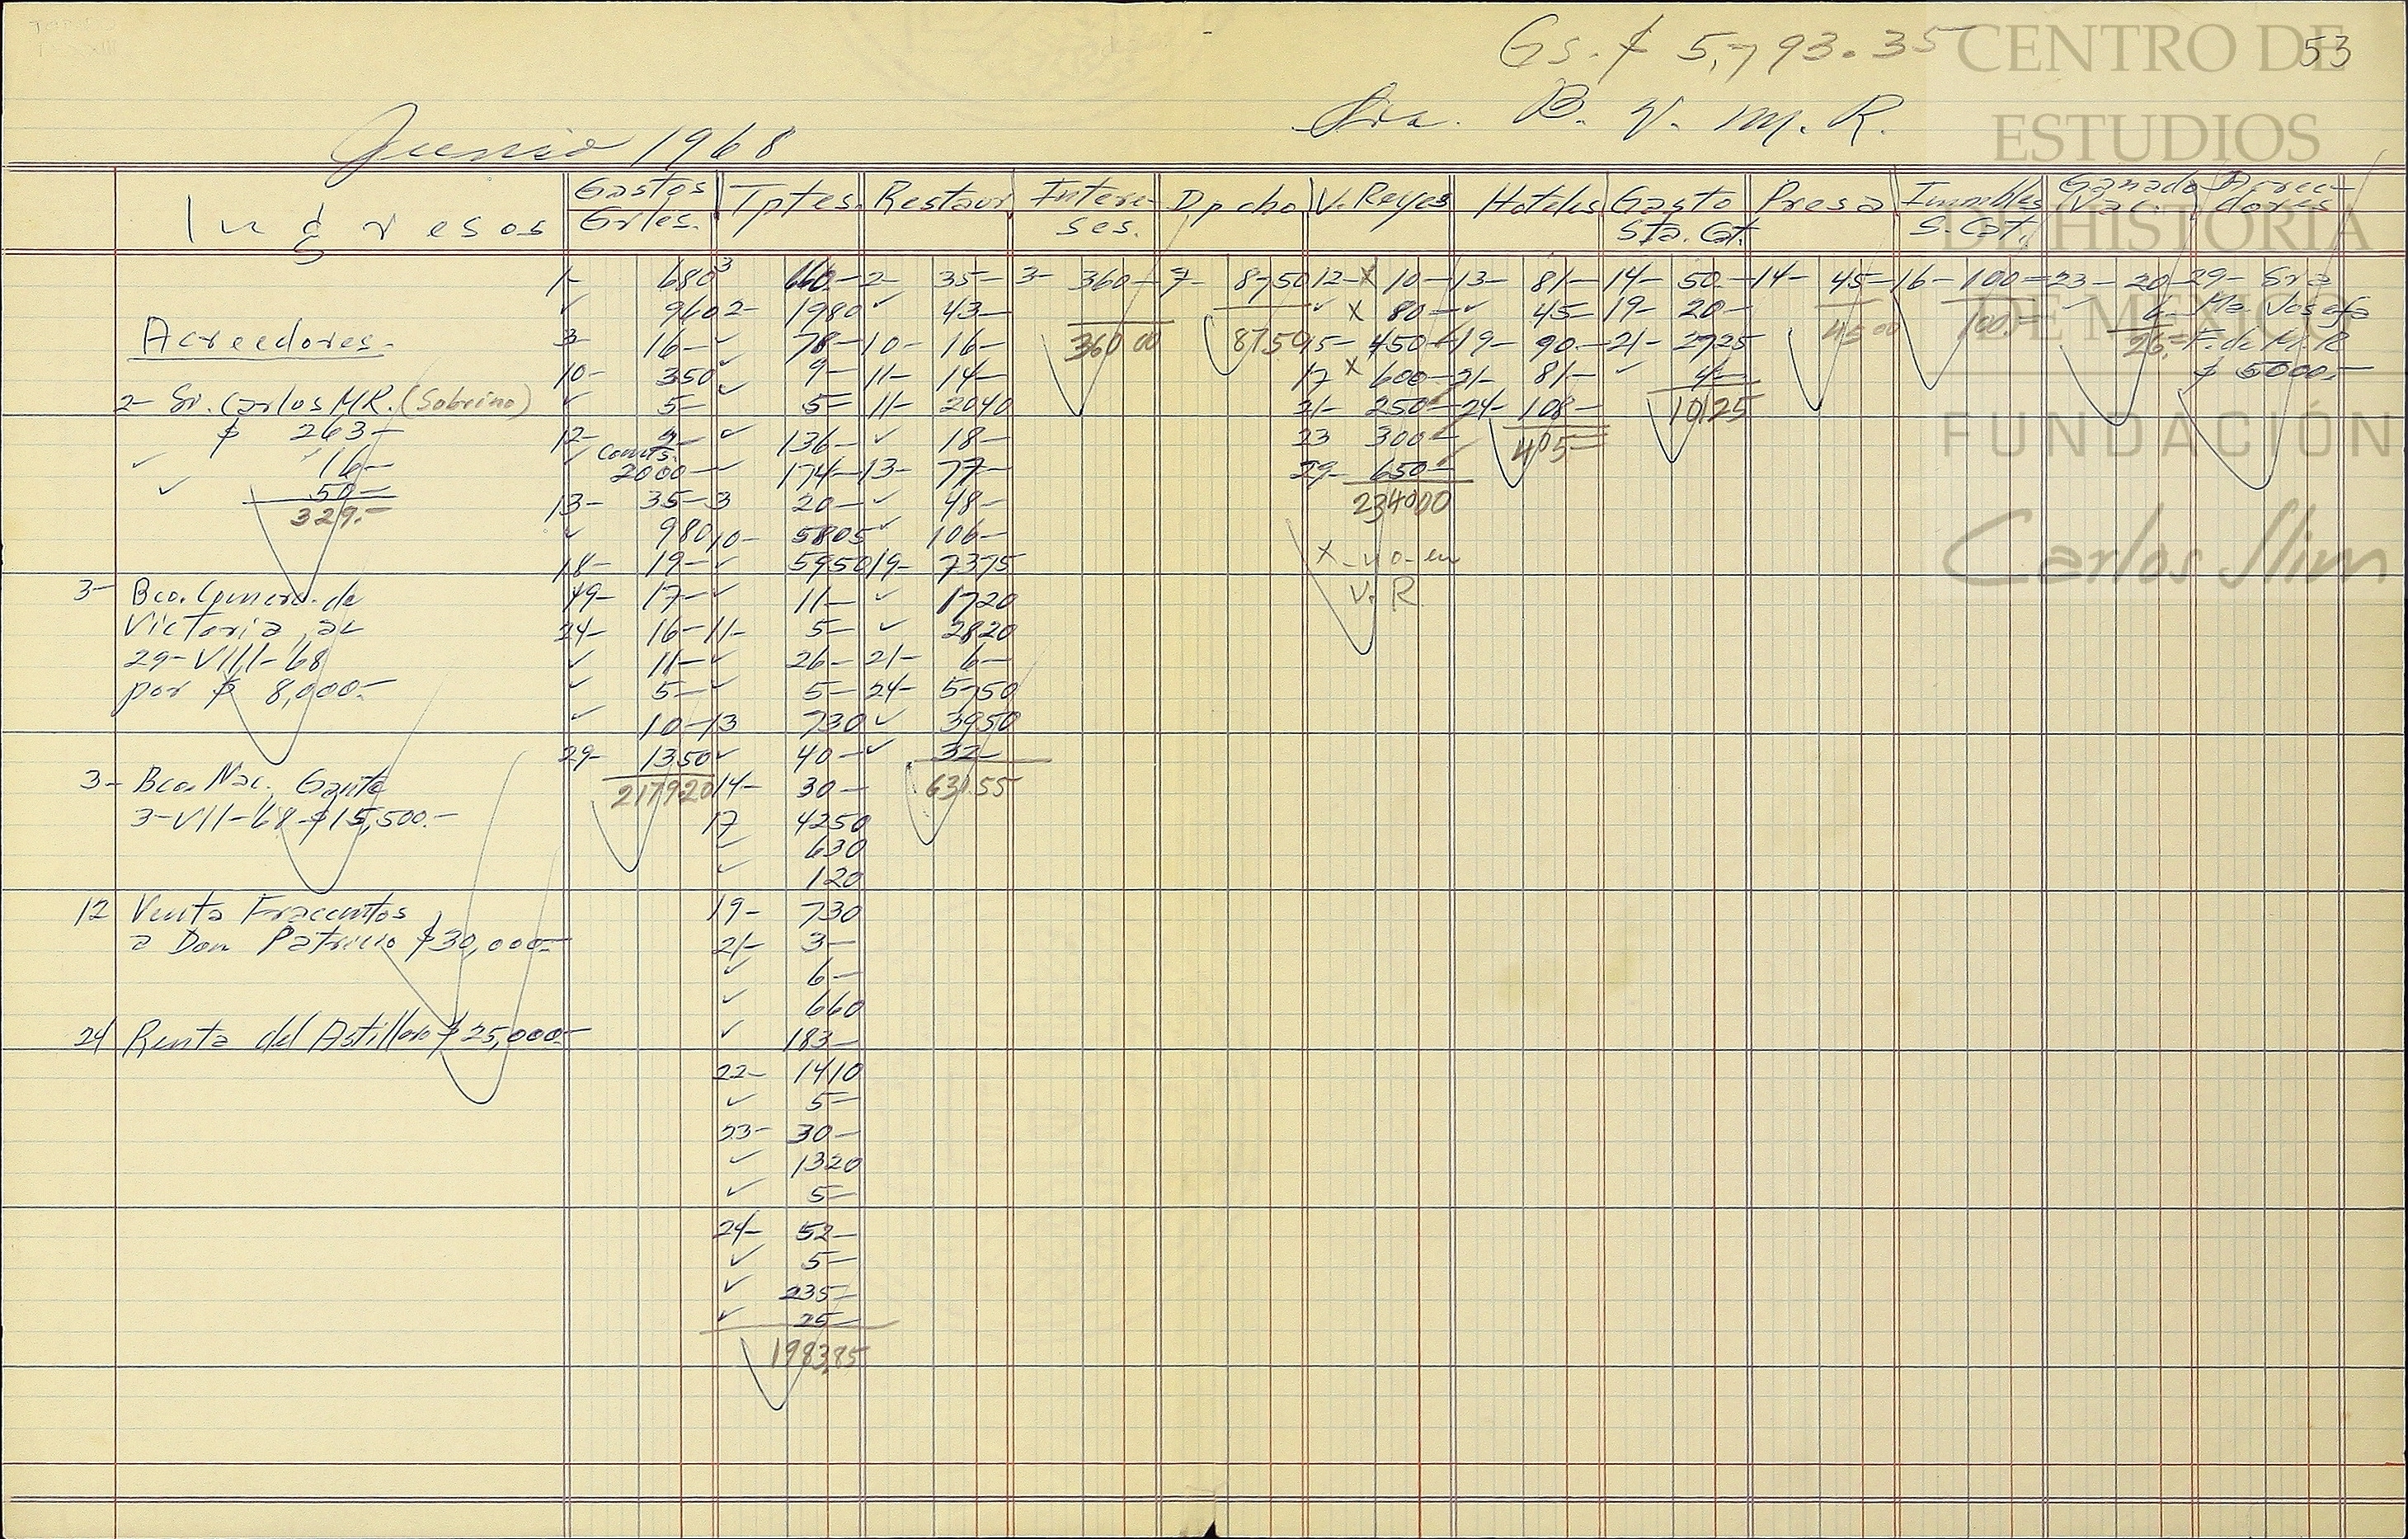 Gs. $ 5,793.35
53
Junio 1968
Sra. B. V. M. R.
Ingresos
Gastos Grles.
Tptes.
Restaur
Intere-ses.
Dpcho
V. Reyes
Hoteles
Gasto Sta. Cat.
Presa
Inmbles S. Cat.
Ganado Vac.
Acree-dores
Acreedores.
2- Sr. Carlos MR. (Sobrino)
$ 263-
✓ 16-
✓ 50-
329.-
3- Bco. Comerc. de
Victoria, al
29-VIII-68
por $ 8,000.-
3- Bco. Nac. Gante
3-VII-68 $15,500.-
12 Venta Fraccmtos
a Don Patricio $30,000.-
24 Renta del Astillero $25,000.-
1- 680
✓ 960
3- 16-
10- 350
✓ 5-
12- 2-
✓ Comts. 2000-
13- 35-
✓ 980
18- 19-
19- 17-
24- 16-
✓ 11-
✓ 5-
✓ 10-
29- 1350
217920
3 660-
2- 1980
✓ 78-
✓ 9-
✓ 5-
✓ 136-
✓ 174-
3 20-
10- 5805
✓ 5950
✓ 11-
11- 5-
✓ 26-
✓ 5-
13 730
✓ 40-
14- 30-
17 4250
✓ 630
✓ 120
19- 730
21- 3-
✓ 6-
✓ 660
✓ 183-
22- 1410
✓ 5-
23- 30-
✓ 1320
✓ 5-
24- 52-
✓ 5-
✓ 235-
✓ 25-
198385
2- 35-
✓ 43-
10- 16-
11- 14-
11- 2040
✓ 18-
13- 77-
✓ 48-
✓ 106-
19- 7375
✓ 1720
✓ 2820
21- 6-
24- 5750
✓ 3950
✓ 32-
631.55
3- 360-
360 00
7- 8750
8750
12- x 10-
✓ x 80-
15- 450-
17 x 600-
21- 250-
23 300-
29- 650-
234000
x - no en
V. R.
13- 81-
✓ 45-
19- 90-
21- 81-
24- 108-
405-
14- 50-
19- 20-
21- 2725
✓ 4-
10125
14- 45-
45 00
16- 100-
100.-
23- 20-
✓ 6-
26.-
29- Sra
Ma. Josefa
F. de M. R
$ 5000.-
CENTRO DE
ESTUDIOS
DE HISTORIA
DE MÉXICO
FUNDACIÓN
Carlos Slim